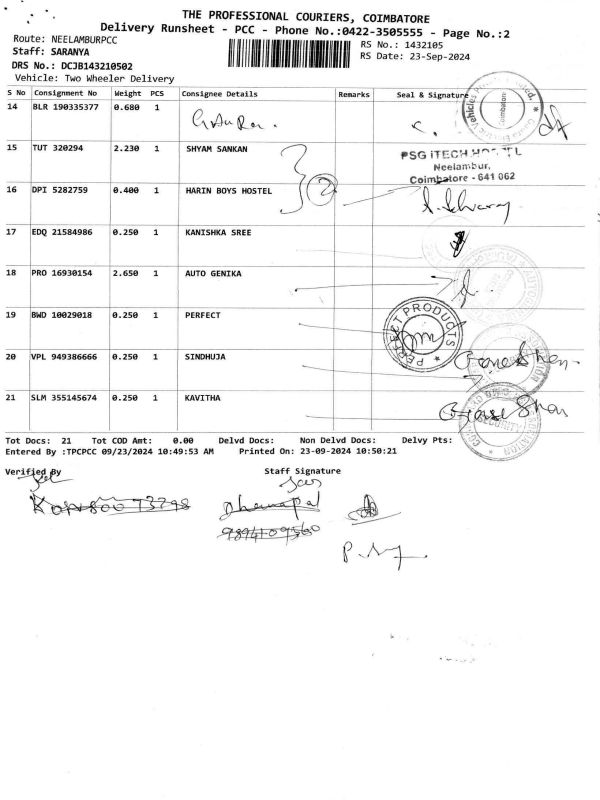 THE PROFESSIONAL COURIERS, COIMBATORE
Delivery Runsheet - PCC - Phone No.:0422-3505555 - Page No.:2
Route: NEELAMBURPCC
RS No.: 1432105
Staff: SARANYA
RS Date: 23-Sep-2024
DRS No.: DCJB143210502
Vehicle: Two Wheeler Delivery
S No Consignment No Weight PCS Consignee Details Remarks Seal & Signature
14 BLR 190335377 0.680 1
15 TUT 320294 2.230 1 SHYAM SANKAN
PSG iTECH HOSTEL
Neelambur,
Coimbatore - 641 062
16 DPI 5282759 0.400 1 HARIN BOYS HOSTEL
2
17 EDQ 21584986 0.250 1 KANISHKA SREE
18 PRO 16930154 2.650 1 AUTO GENIKA
19 BWD 10029018 0.250 1 PERFECT
PERFECT PRODUCTS
20 VPL 949386666 0.250 1 SINDHUJA
21 SLM 355145674 0.250 1 KAVITHA
SECURITY
Tot Docs: 21 Tot COD Amt: 0.00 Delvd Docs: Non Delvd Docs: Delvy Pts:
Entered By :TPCPCC 09/23/2024 10:49:53 AM Printed On: 23-09-2024 10:50:21
Verified By Staff Signature
Dhanapal